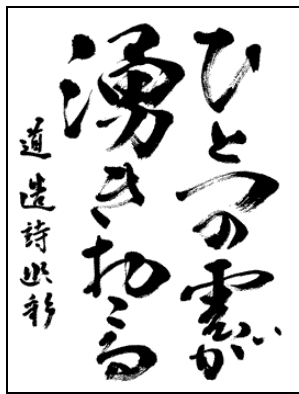 ひとつの雲が
湧きおこる
道造詩